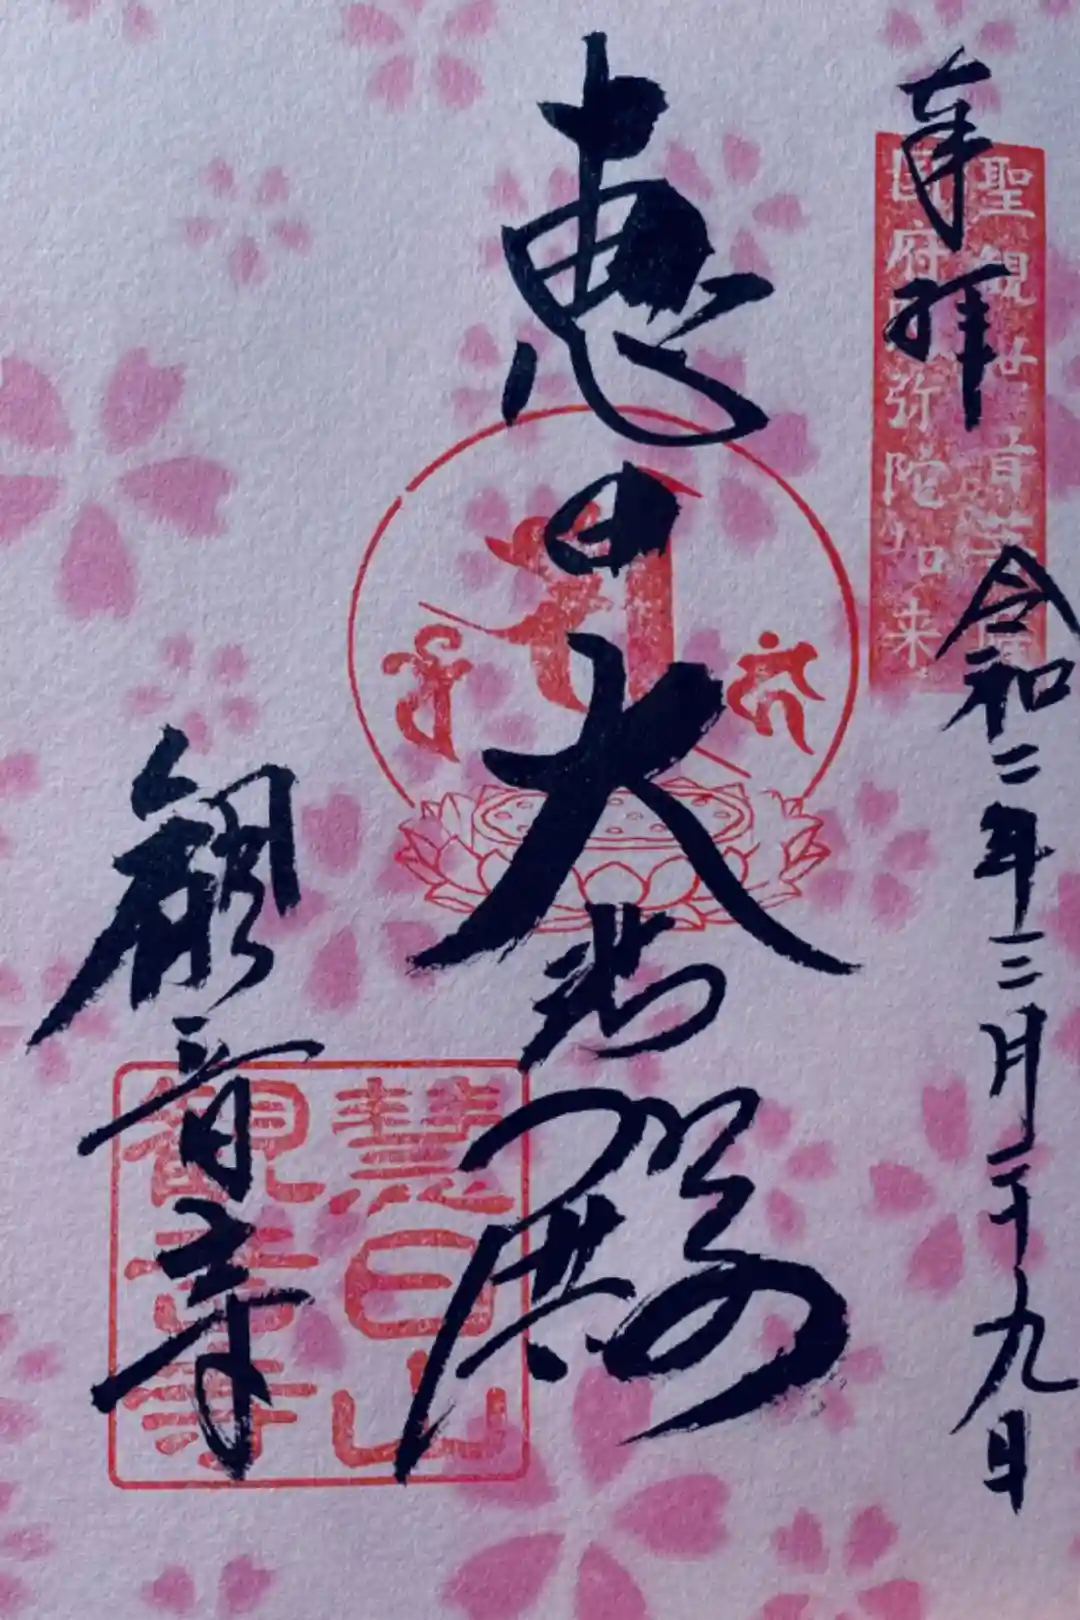 奉拝
令和二年三月二十九日
聖観世音菩薩
国府阿弥陀如来
恵日大悲殿
観音寺
慧日山
観音寺